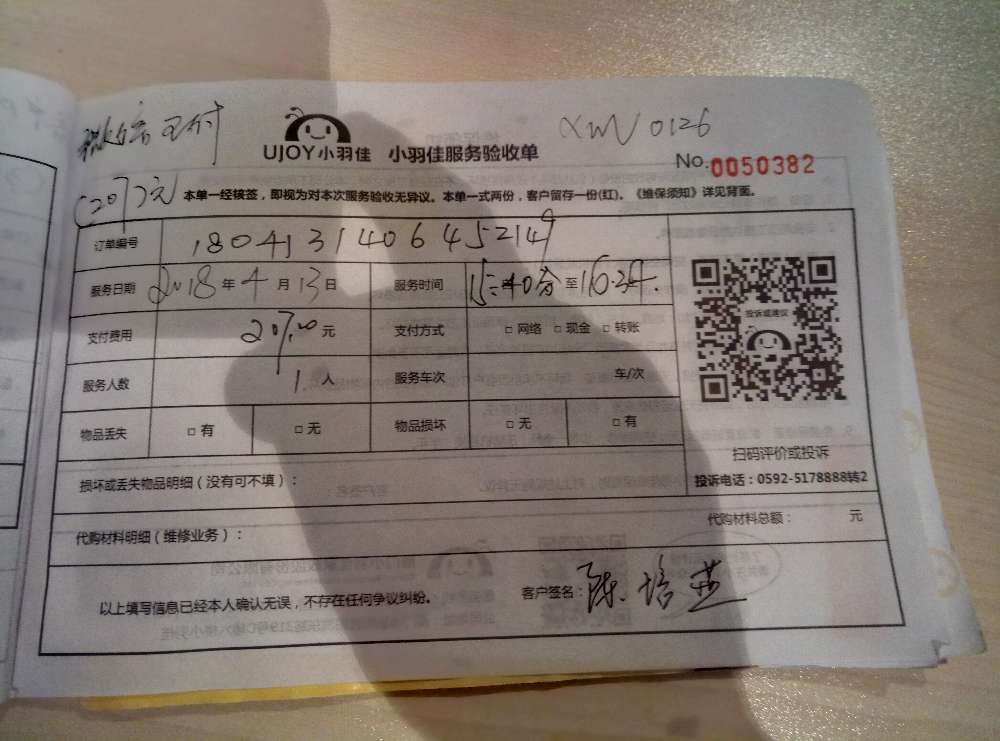 微信支付
UJOY小羽佳 小羽佳服务验收单
XMN 0126
No.0050382
(207元) 本单一经核签，即视为对本次服务验收无异议。本单一式两份，客户留存一份(红)。《维保须知》详见背面。
订单编号 1804131406452149
服务日期 2018年4月13日 服务时间 15:40分至16:34.
支付费用 207.00元 支付方式 □ 网络 □ 现金 □ 转账
投诉或建议
服务人数 1.人 服务车次 车/次
物品丢失 □ 有 □ 无 物品损坏 □ 无 □ 有
扫码评价或投诉
损坏或丢失物品明细（没有可不填）：
投诉电话：0592-5178888转2
代购材料明细（维修业务）：
代购材料总额： 元
以上填写信息已经本人确认无误，不存在任何争议纠纷。 客户签名：陈培燕